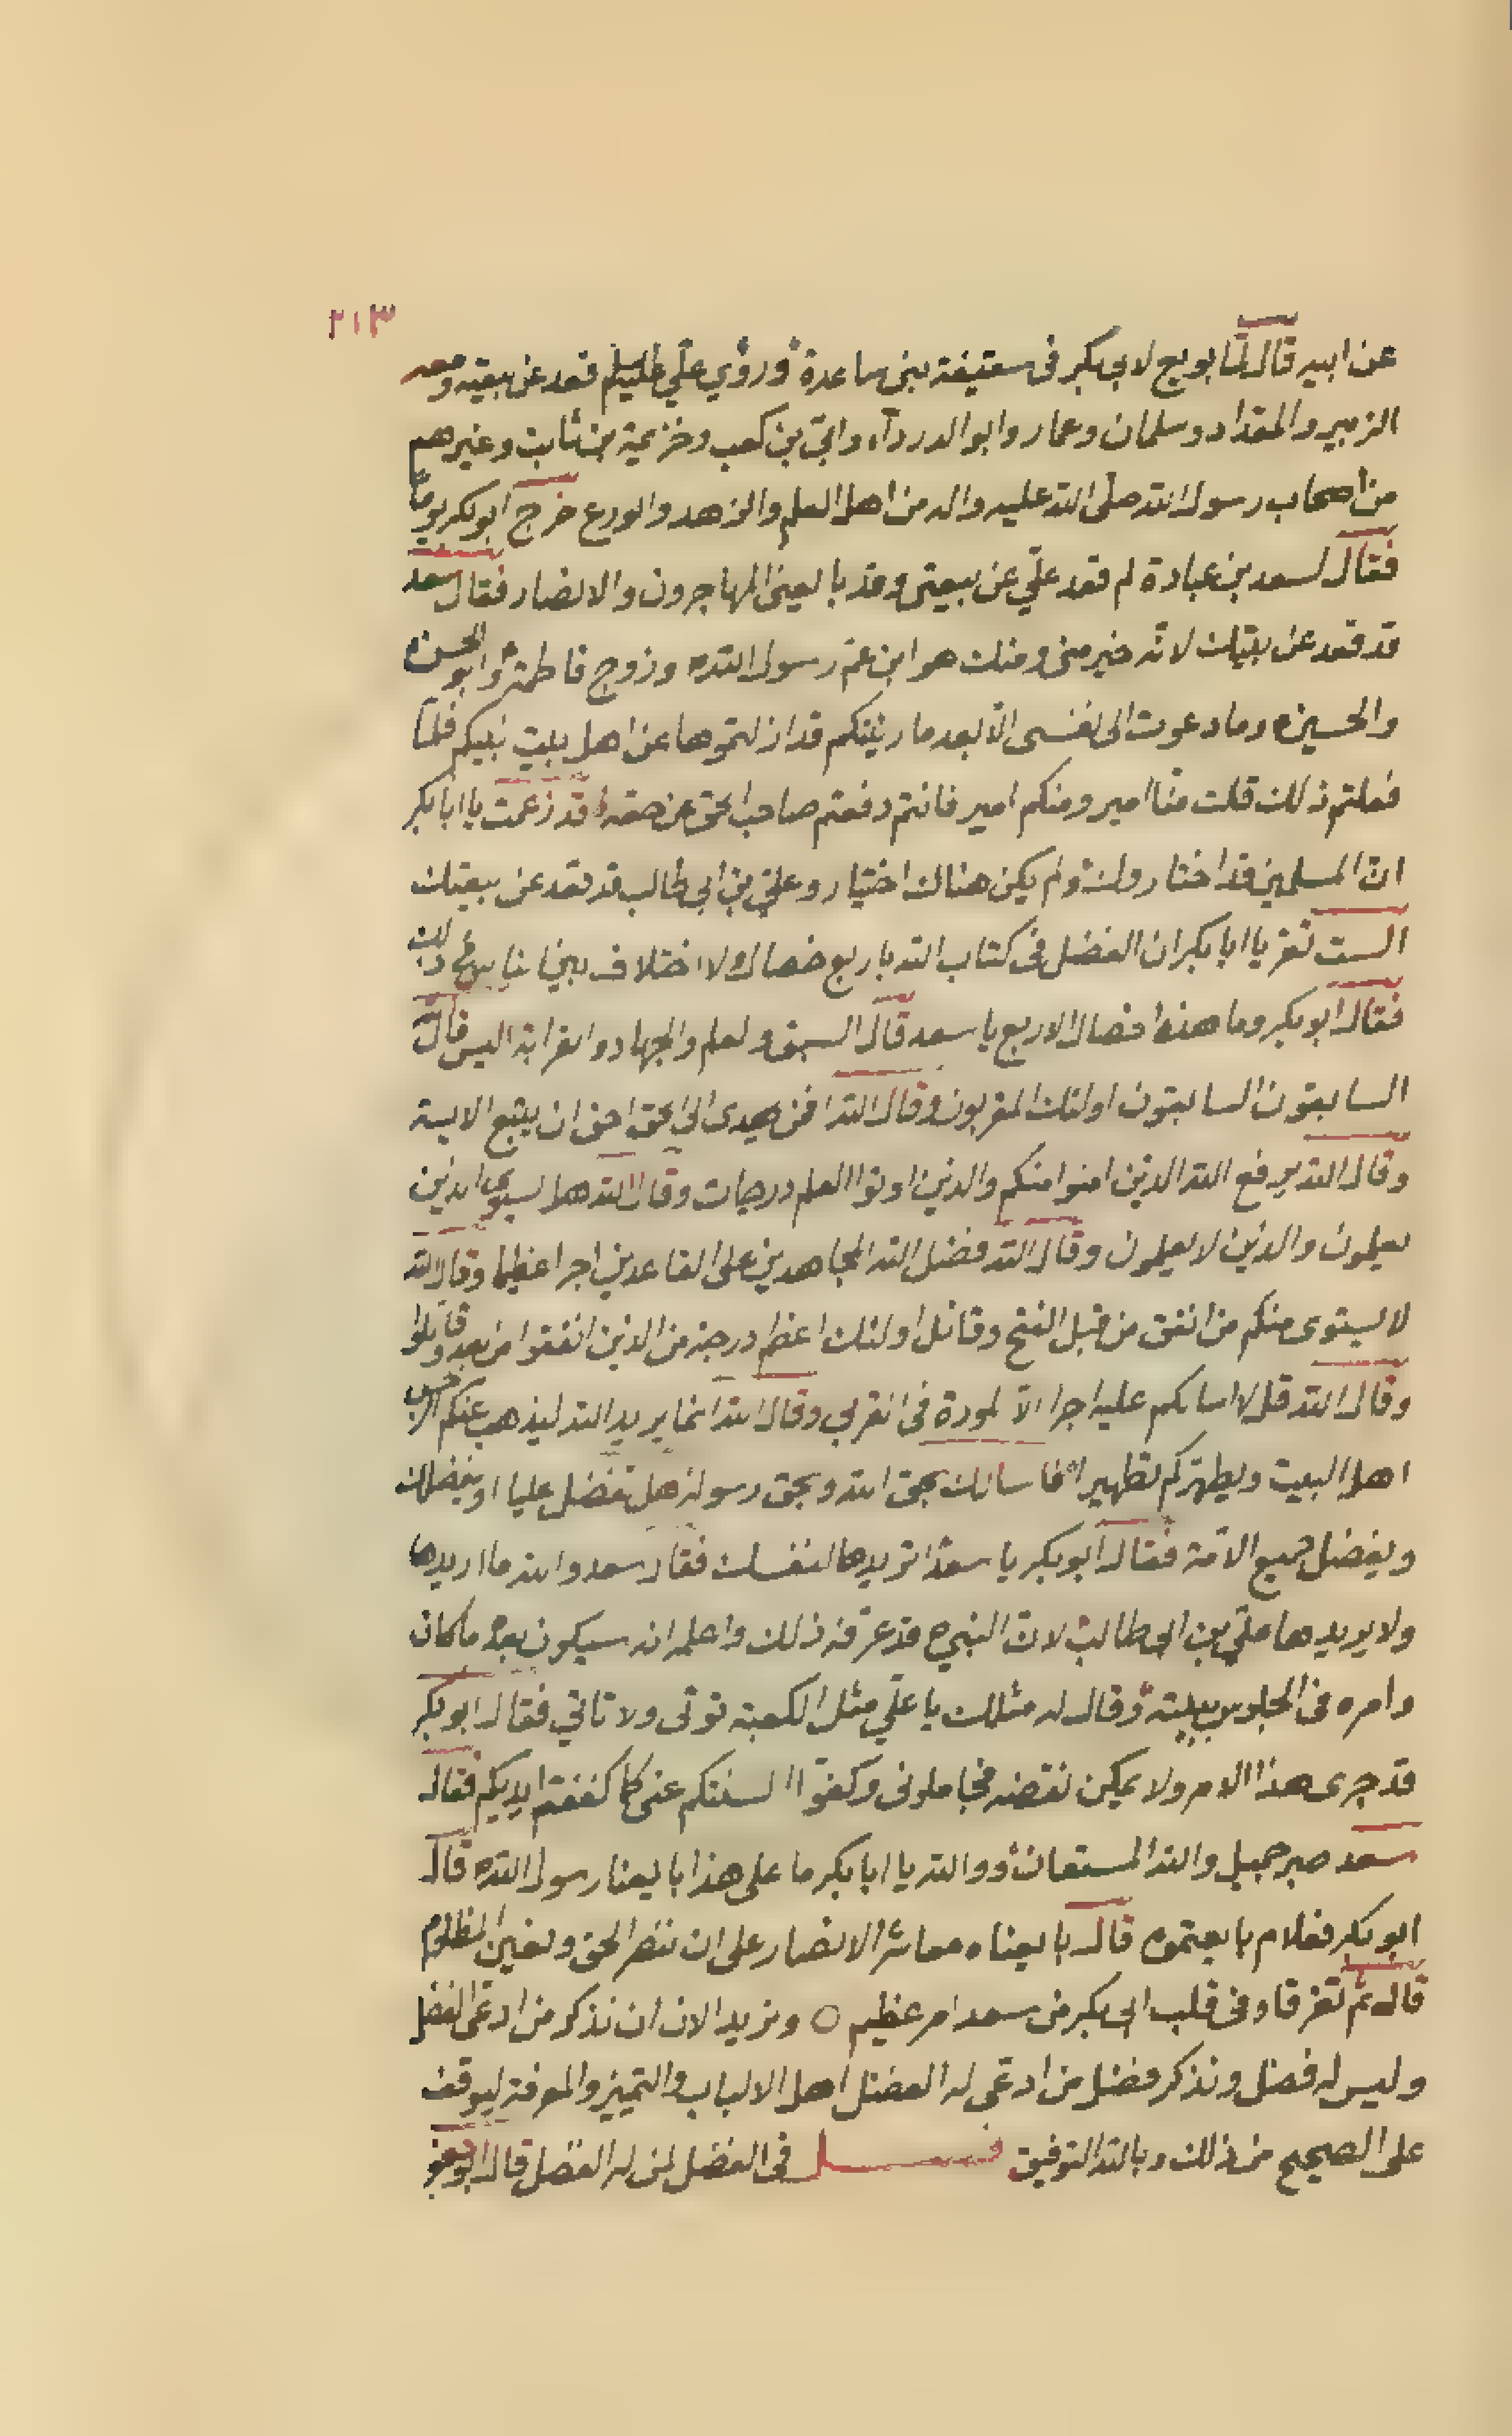 ٢١٣
عن ابيه قال لما بويع لابى بكر فى سقيفة بنى ساعدة وروى على عليه السلم قعد عن بيعته ومعه
الزبير والمقداد وسلمان وعمار وابو الدرداء وابى بن كعب وخزيمة بن ثابت وغيرهم
من اصحاب رسول الله صلى الله عليه واله من اهل العلم والزهد والورع خرج ابو بكر يوما
فقال لسعد بن عبادة لم قعد على عن بيعتى وقد بايعنى المهاجرون والانصار فقال سعد
قد قعد عن بيعتك لانه خير منى ومنك هو ابن عم رسول الله ص وزوج فاطمة وابو الحسن
والحسين وما دعوت الى نفسى الا بعد ما رئيتكم قد ازلتموها عن اهل بيت نبيكم فلما
فعلتم ذلك قلت منا امير ومنكم امير فانتم دفعتم صاحب الحق عن حقه قد زعمت يا ابا بكر
ان المسلمين قد اختاروك ولم يكن هناك اختيار وعلى بن ابى طالب قد قعد عن بيعتك
الست تقر يا ابا بكر ان الفضل فى كتاب الله باربع خصال ولا اختلاف بين الناس فى ذلك
فقال ابو بكر وما هذه الخصال الاربع يا سعد قال السبق والعلم والجهاد والقرابة اليس قال الله
السابقون السابقون اولئك المقربون وقال الله افمن يهدى الى الحق احق ان يتبع الاية
وقال الله يرفع الله الذين امنوا منكم والذين اوتوا العلم درجات وقال الله هل يستوى الذين
يعلمون والذين لا يعلمون وقال الله فضل الله المجاهدين على القاعدين اجرا عظيما وقال الله
لا يستوى منكم من انفق من قبل الفتح وقاتل اولئك اعظم درجة من الذين انفقوا من بعد وقاتلوا
وقال الله قل لا اسالكم عليه اجرا الا المودة فى القربى وقال الله انما يريد الله ليذهب عنكم الرجس
اهل البيت ويطهركم تطهيرا فاسالك بحق الله وبحق رسوله هل تفضل عليا او يفضلك
ويفضل جميع الامة فقال ابو بكر يا سعد اتريدها لنفسك فقال سعد والله ما اريدها
ولا يريدها على بن ابى طالب لان النبى ص قد عرفه ذلك واعلمه انه سيكون بعده ما كان
وامره فى الجلوس ببيته وقال له مثلك يا على مثل الكعبة توتى ولا تاتى فقال ابو بكر
قد جرى هذا الامر ولا يمكن نقضه فجاملونى وكفوا السنتكم عنى كما كففتم ايديكم فقال
سعد صبر جميل والله المستعان ووالله يا ابا بكر ما على هذا بايعنا رسول الله ص قال
ابو بكر فعلام بايعتموه قال بايعناه معاشر الانصار على ان ننصر الحق ونعين المظلوم
قال ثم تفرقا وفى قلب ابى بكر من سعد امر عظيم ○ ونريد الان ان نذكر من ادعى الفضل
وليس له فضل ونذكر فضل من ادعى له الفضل اهل الالباب والتمييز والمعرفة ليوقف
على الصحيح من ذلك وبالله التوفيق فصل فى الفضل لمن له الفضل قال ابو جعفر